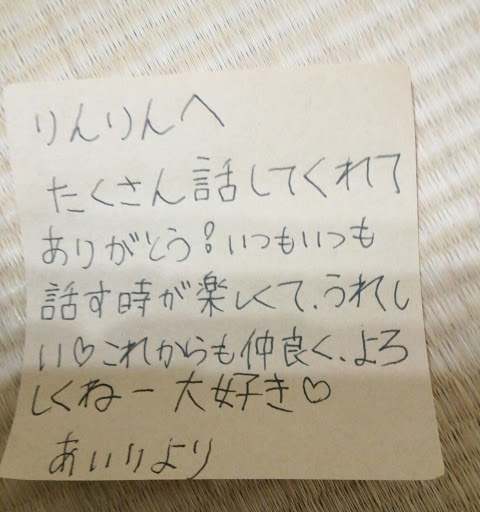 りんりんへ
たくさん話してくれて
ありがとう!いつもいつも
話す時が楽しくて、うれし
い♡これからも仲良く、よろ
しくねー 大好き♡
あいりより